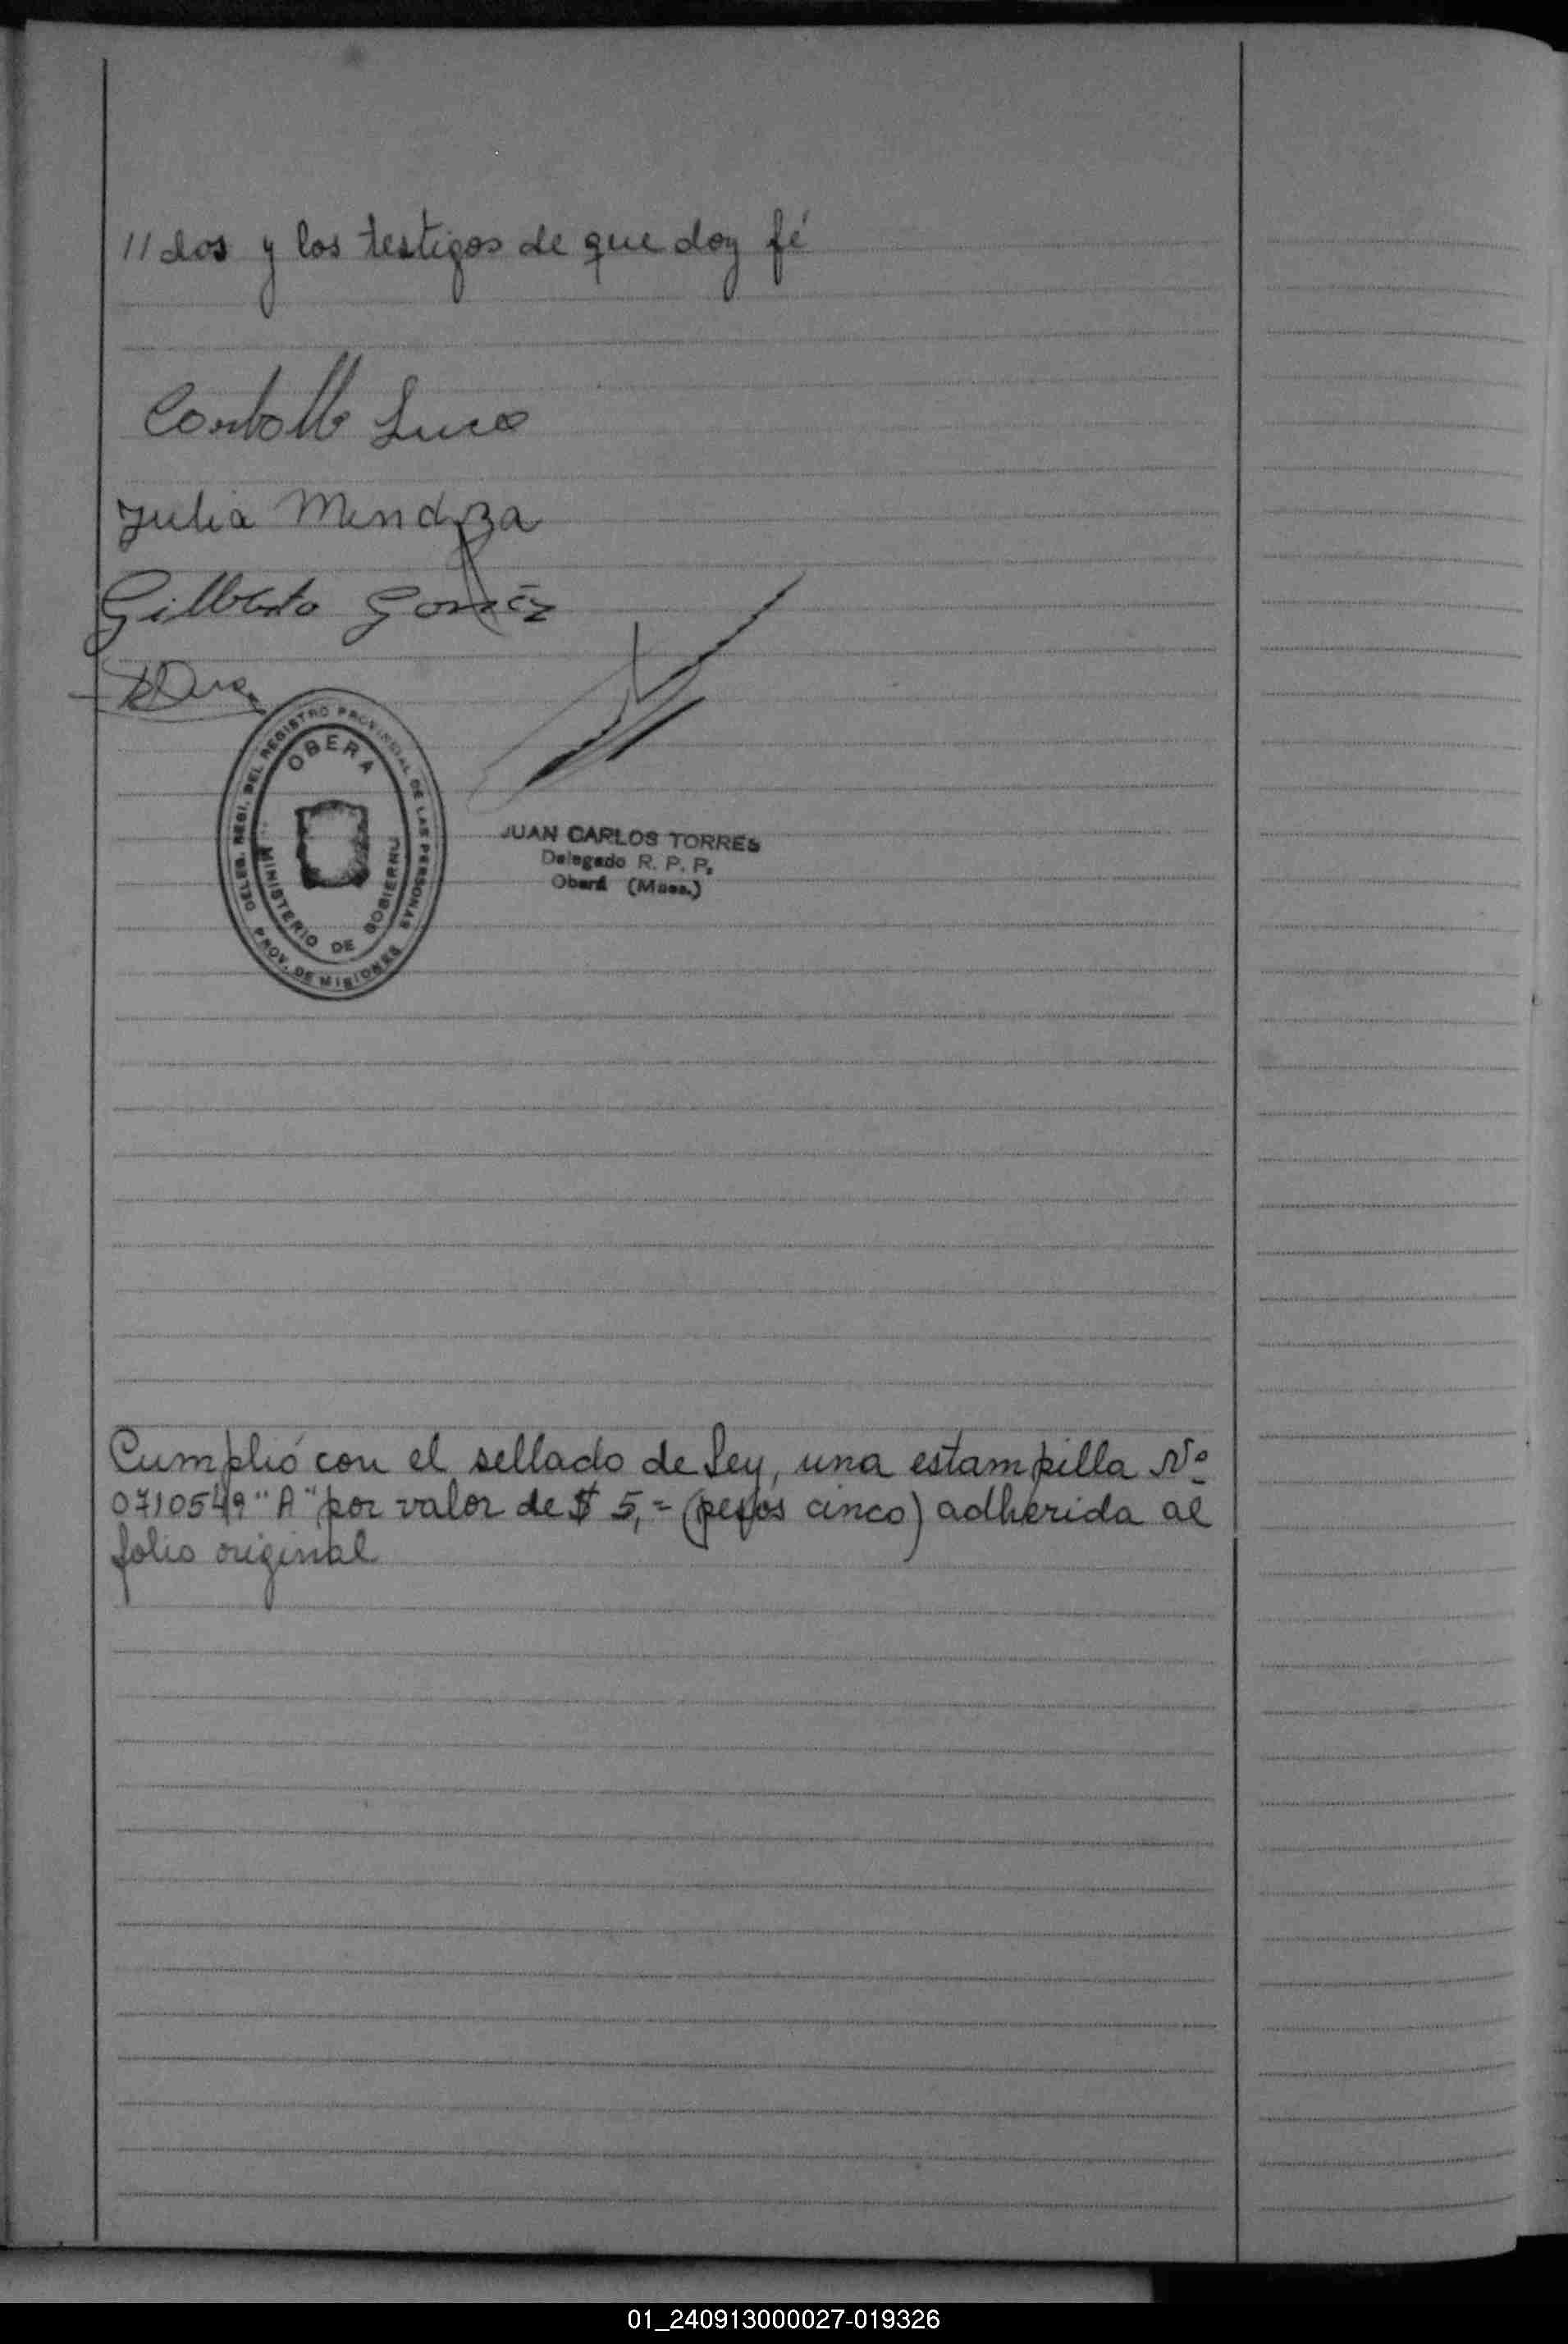 //dos y los testigos de que doy fé
Luca
Julia Mendoza
Gilberto Gomez
DELEG. REGI. DEL REGISTRO PROVINCIAL DE LAS PERSONAS
OBERA
MINISTERIO DE GOBIERNO
PROV. DE MISIONES
JUAN CARLOS TORRES
Delegado R. P. P.
Oberá (Mnes.)
Cumplió con el sellado de Ley, una estampilla Nº
0710549 "A" por valor de $ 5,= (pesos cinco) adherida al
folio original
01_240913000027-019326